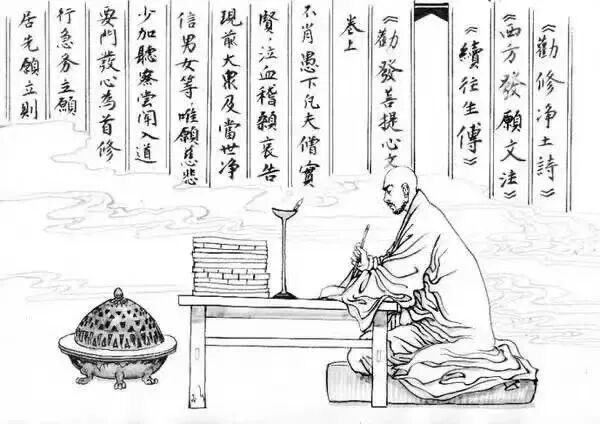 《勸修净土詩》
《西方發願文注》
《續往生傳》
《勸發菩提心文》
卷上
不肖愚下凡夫僧實
賢，泣血稽顙哀告
現前大衆及當世净
信男女等，唯願慈悲
少加聽察嘗聞入道
要門發心為首修
行急务立願
居先願立則